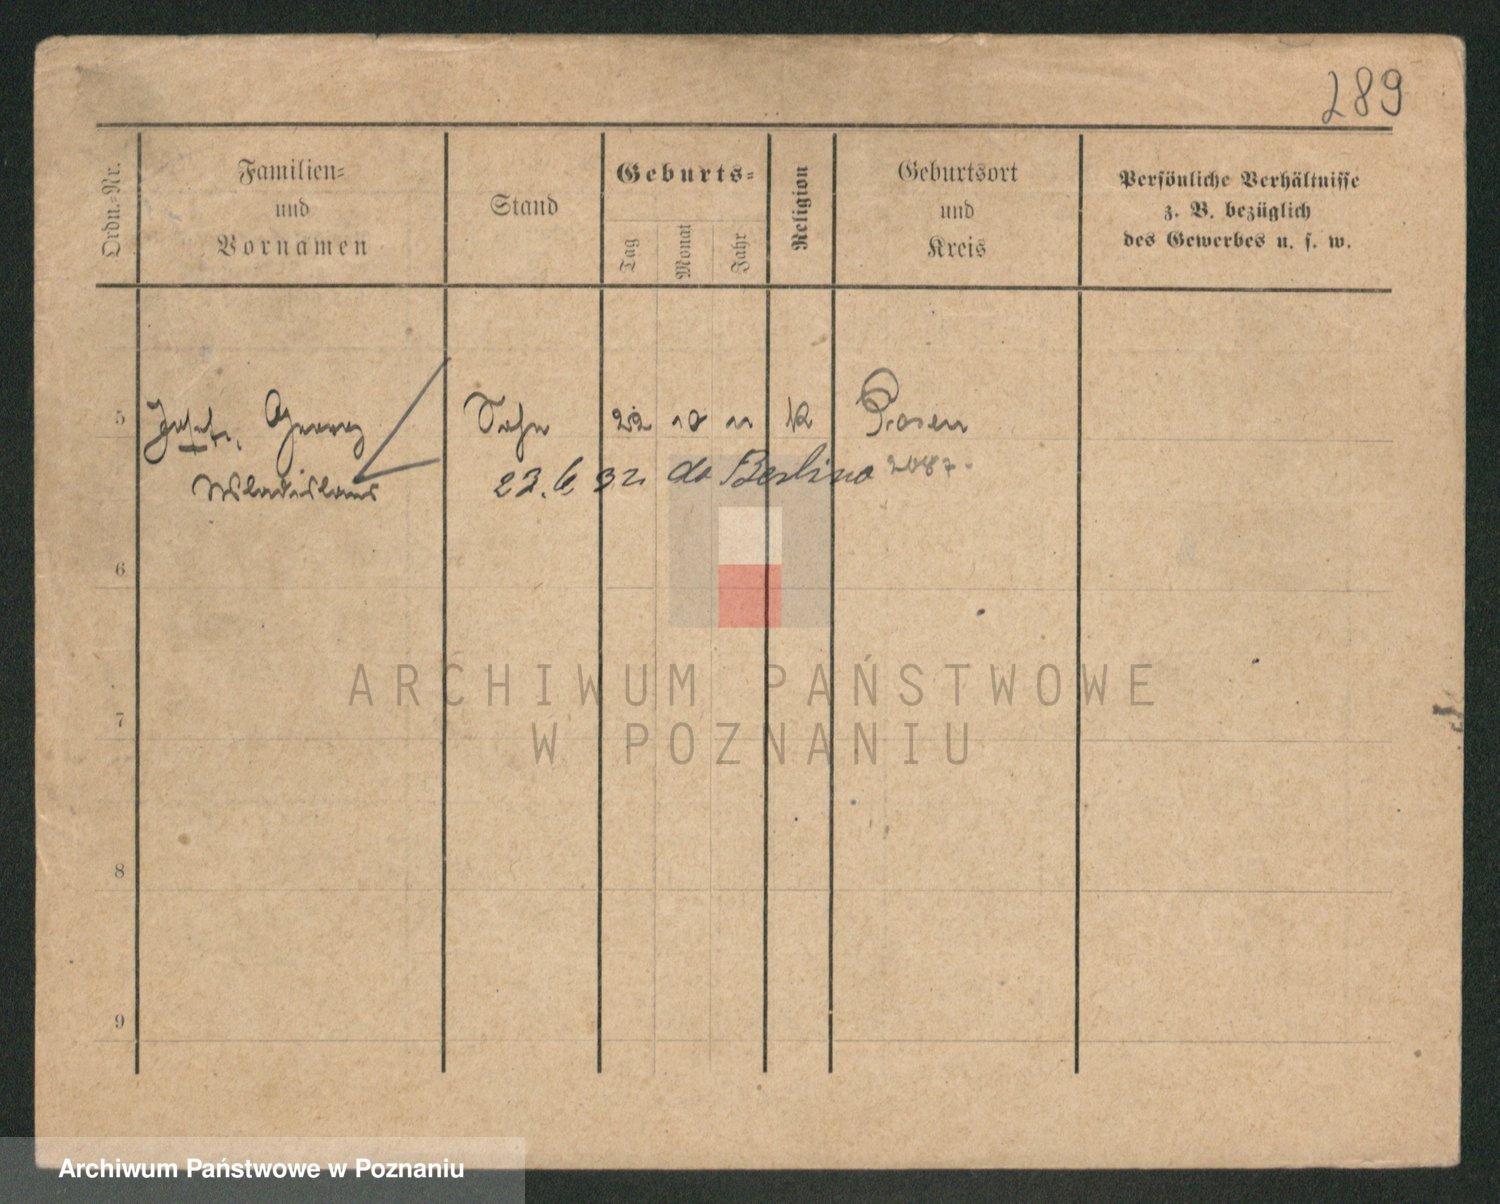 289
Ordn.-Nr.
Familien-
und
Vornamen
Stand
Geburts-
Tag
Monat
Jahr
Religion
Geburtsort
und
Kreis
Persönliche Verhältnisse
z. B. bezüglich
des Gewerbes u. s. w.
5 Josef, Georg Sohn 22 10 11 k Posen
Wladislaus 23. 6 32 do Berlina 2087.
6
7
8
9
ARCHIWUM PAŃSTWOWE
W POZNANIU
Archiwum Państwowe w Poznaniu